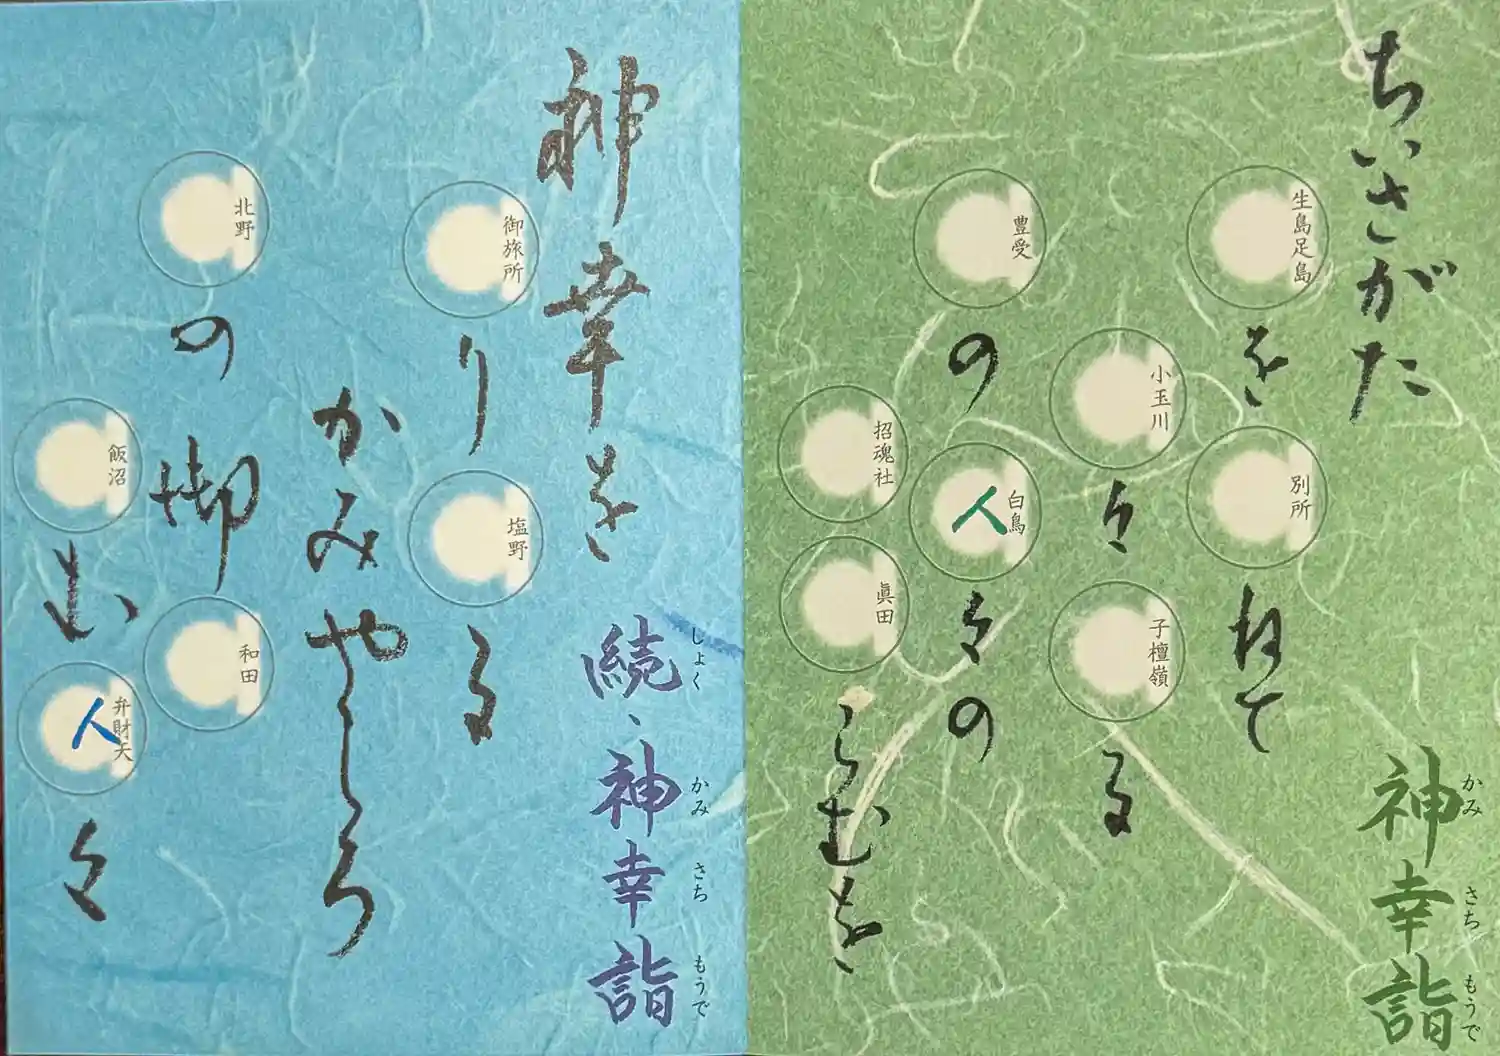 ちいさがた
生島足島
をねて
別所
小玉川
々る
子檀嶺
豊受
の人々の
白鳥
招魂社
眞田
らむを
神幸詣
かみ さち もうで
神幸を
御旅所
りる
塩野
かみやしろ
北野
の御
和田
飯沼
心人々
弁財天
続、神幸詣
しょく かみ さち もうで